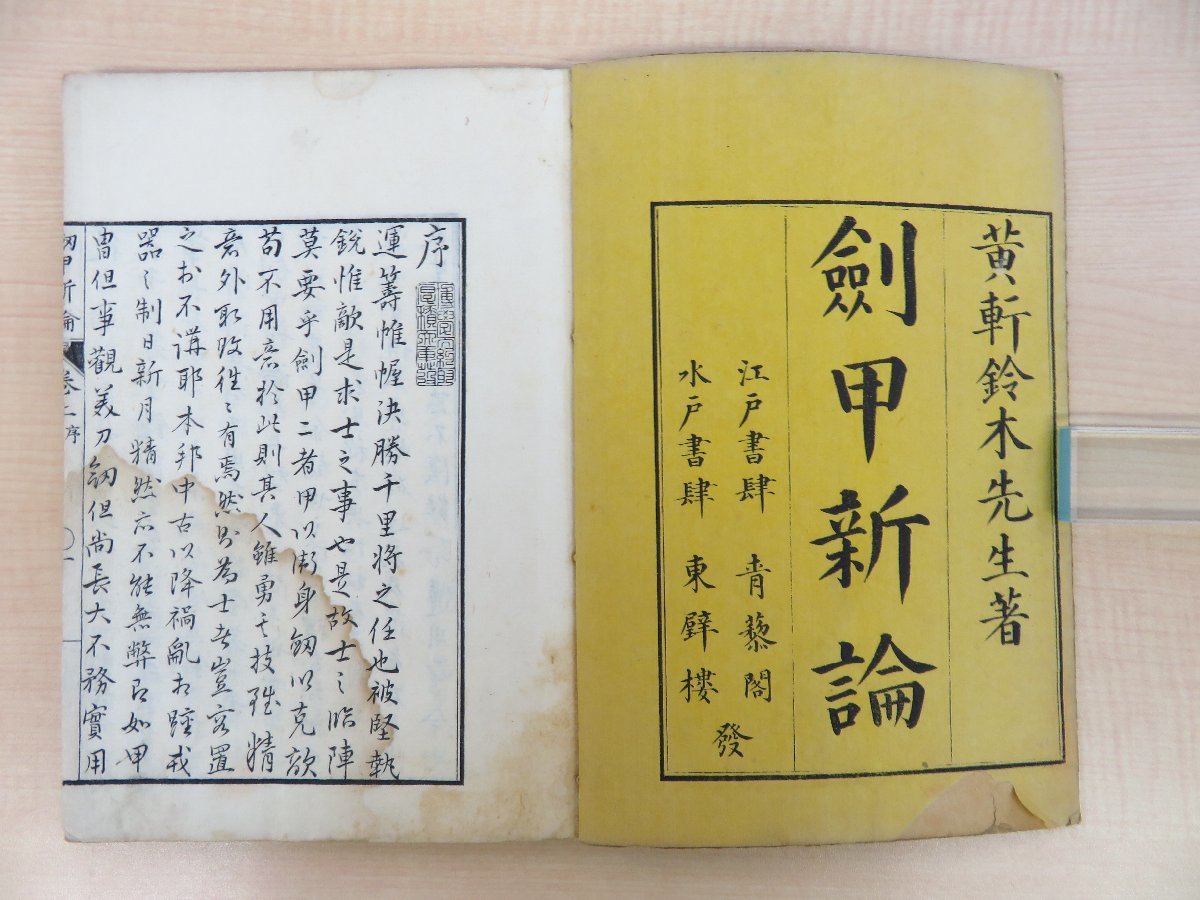 黄軒鈴木先生著
劍甲新論
江戸書肆 青藜閣
水戸書肆 東壁樓
發
序
運籌帷幄決勝千里將之任也被堅執
銳惟敵是求士之事也是故士之臨陣
莫要乎劍甲二者甲以衛身劔以克敵
苟不用意於此則其人雖勇其技雖精
意外取敗往〻有焉然則為士者豈容置
之於不講耶本邦中古以降禍亂相踵戎
器之制日新月精然亦不能無弊焉如甲
冑但事觀美刀劔但尚長大不務實用
劔甲新論 卷之序